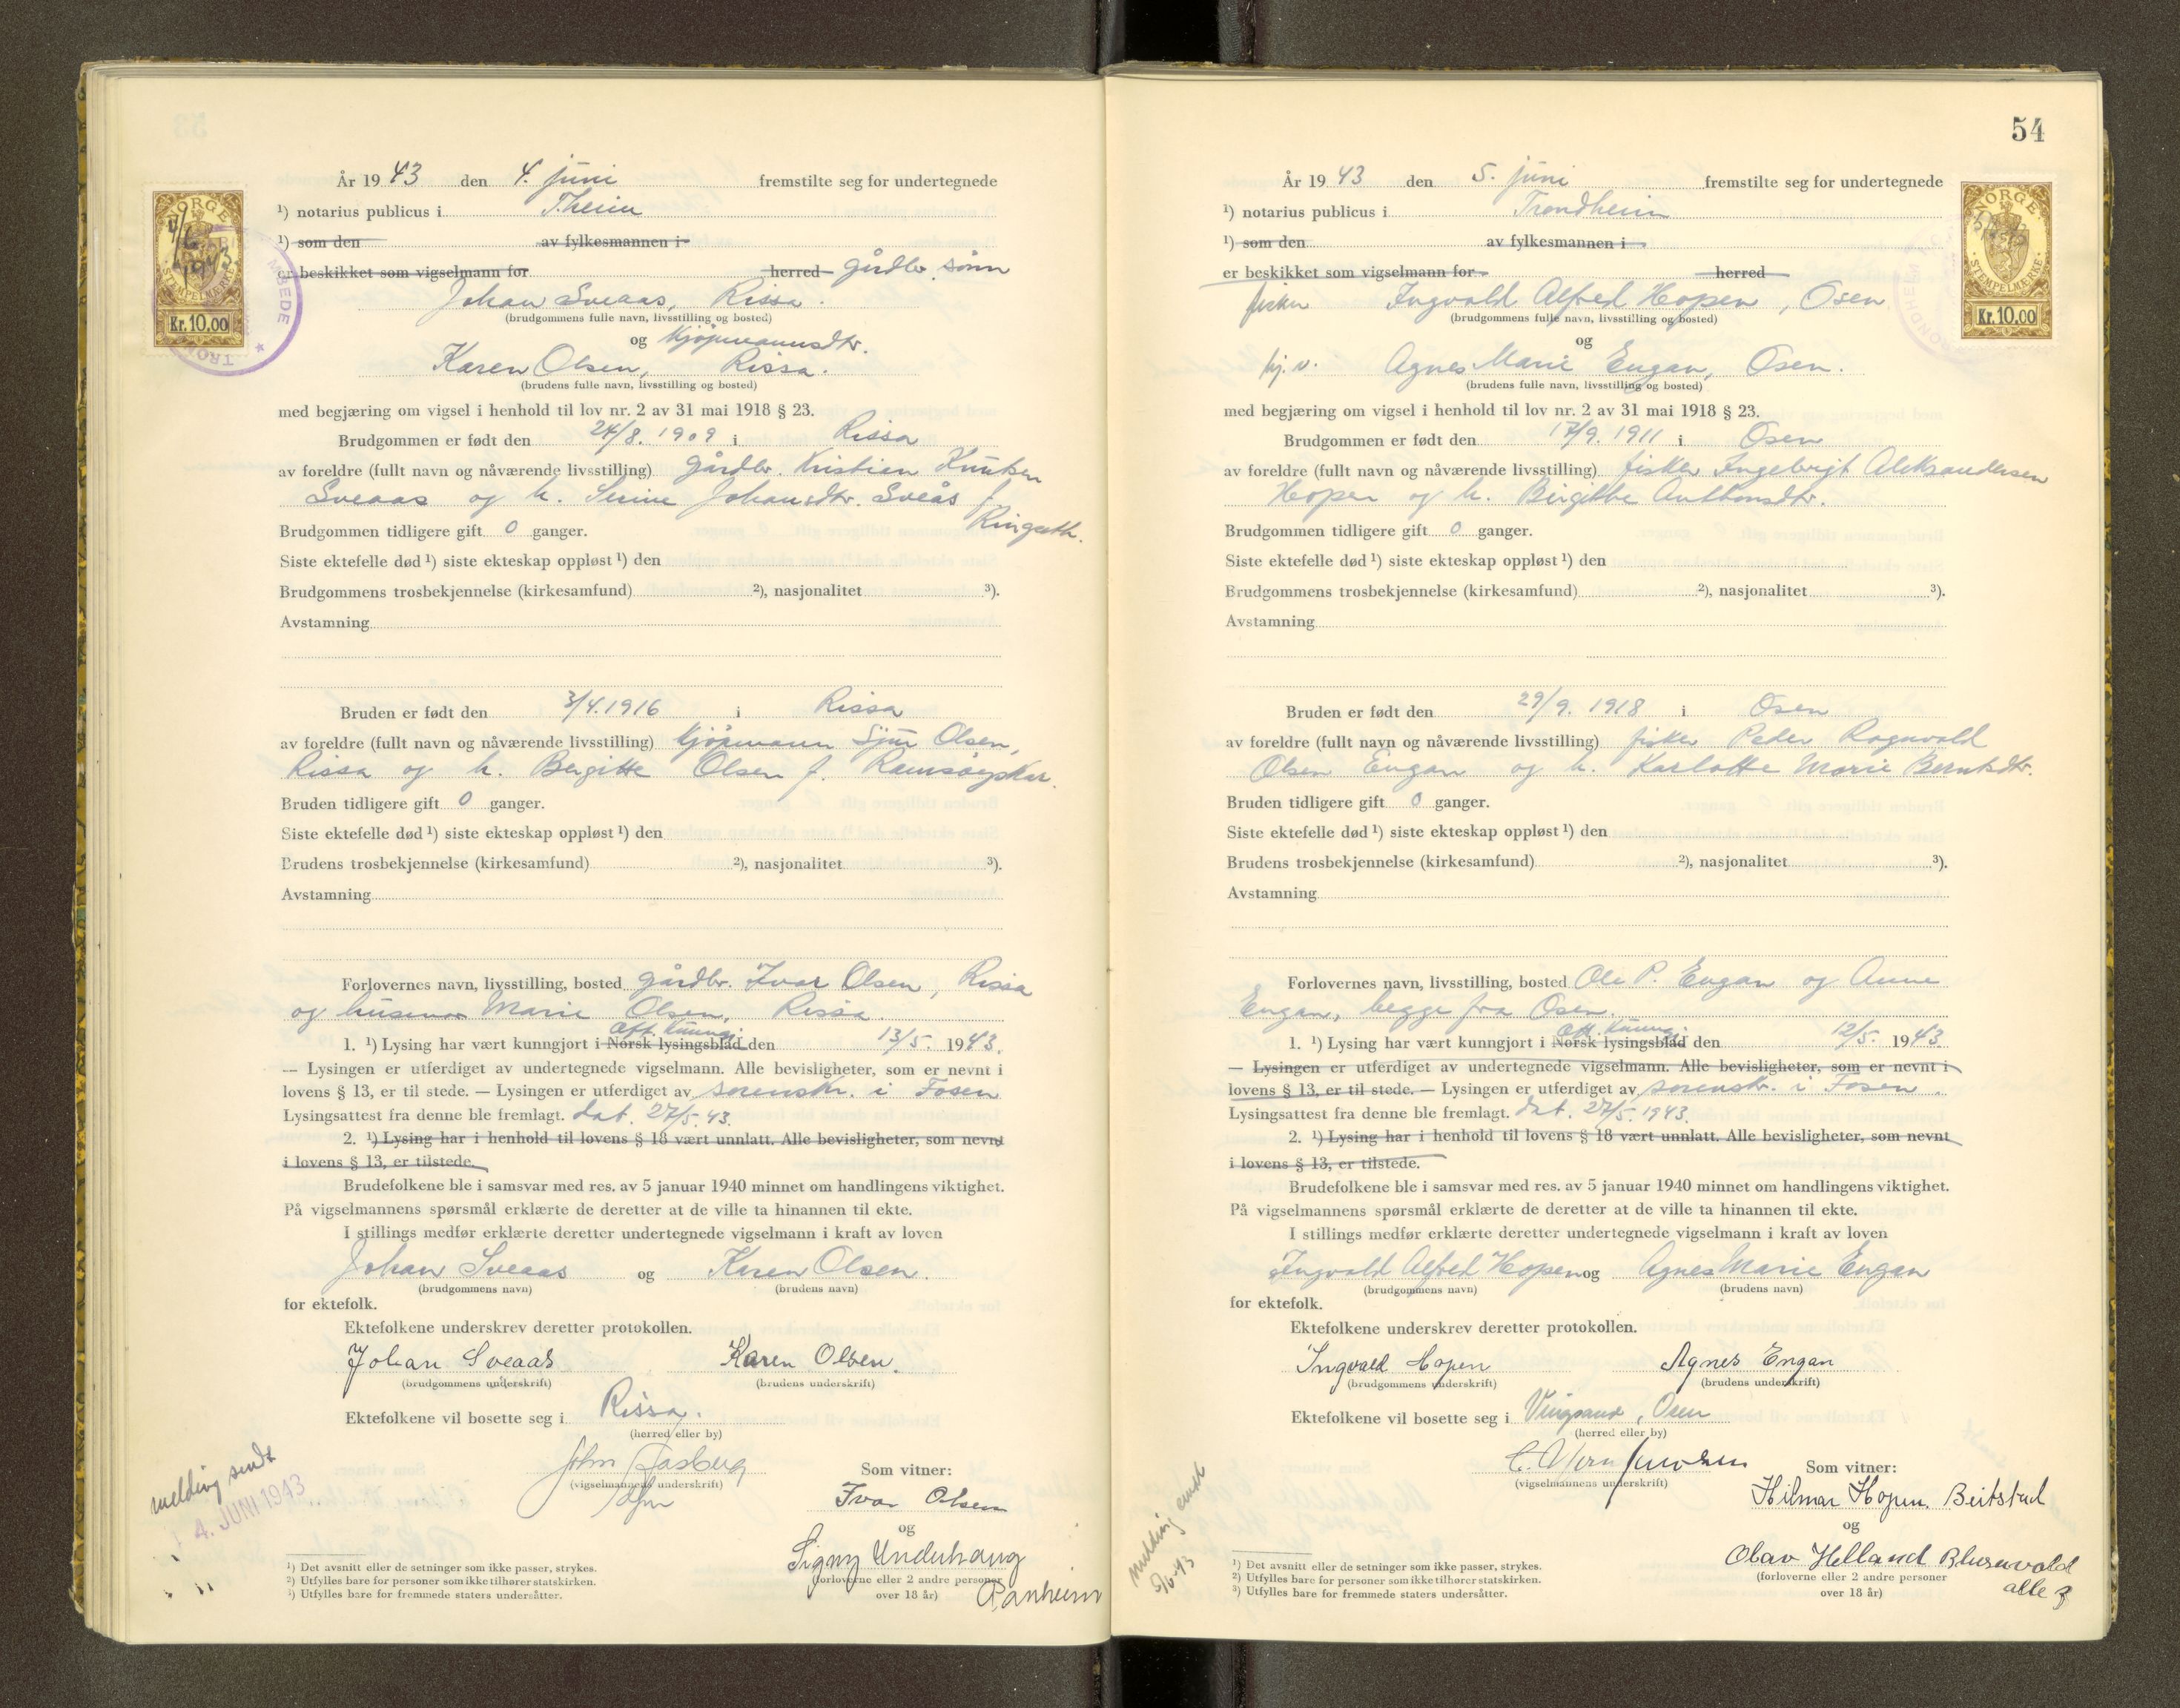 År 1943 den 4. juni fremstilte seg for undertegnede
¹) notarius publicus i T.heim
¹) som den av fylkesmannen i
er beskikket som vigselmann for herred gårdbr. sønn
Johan Sveaas, Rissa.
(brudgommens fulle navn, livsstilling og bosted)
og kjøpmannsdtr.
Karen Olsen, Rissa.
(brudens fulle navn, livsstilling og bosted)
med begjæring om vigsel i henhold til lov nr. 2 av 31 mai 1918 § 23.
Brudgommen er født den 24/8. 1909 i Rissa
av foreldre (fullt navn og nåværende livsstilling) gårdbr. Kristian Knutsen
Sveaas og h. Serine Johansdtr. Sveås f.
Brudgommen tidligere gift 0 ganger.
Siste ektefelle død ¹) siste ekteskap oppløst ¹) den
Brudgommens trosbekjennelse (kirkesamfund) ²), nasjonalitet ³).
Avstamning
Bruden er født den 3/4. 1916 i Rissa
av foreldre (fullt navn og nåværende livsstilling) kjøpmann Olsen,
Rissa og h. Bergitte Olsen f.
Bruden tidligere gift 0 ganger.
Siste ektefelle død ¹) siste ekteskap oppløst ¹) den
Brudens trosbekjennelse (kirkesamfund) ²), nasjonalitet ³).
Avstamning
Forlovernes navn, livsstilling, bosted gårdbr. Ivar Olsen, Rissa
og husmor Marie Olsen, Rissa.
Off. kunngj.
1. ¹) Lysing har vært kunngjort i Norsk lysingsblad den 13/5. 1943.
— Lysingen er utferdiget av undertegnede vigselmann. Alle bevisligheter, som er nevnt i
lovens § 13, er til stede. — Lysingen er utferdiget av sorenskr. i Fosen
Lysingsattest fra denne ble fremlagt. dat. 27/5. 43.
2. ¹) Lysing har i henhold til lovens § 18 vært unnlatt. Alle bevisligheter, som nevnt
i lovens § 13, er tilstede.
Brudefolkene ble i samsvar med res. av 5 januar 1940 minnet om handlingens viktighet.
På vigselmannens spørsmål erklærte de deretter at de ville ta hinannen til ekte.
I stillings medfør erklærte deretter undertegnede vigselmann i kraft av loven
Johan Sveaas og Karen Olsen.
(brudgommens navn) (brudens navn)
for ektefolk.
Ektefolkene underskrev deretter protokollen.
Johan Sveaas Karen Olsen.
(brudgommens underskrift) (brudens underskrift)
Ektefolkene vil bosette seg i Rissa.
(herred eller by)
John Aasberg
(vigselmannens underskrift)
Som vitner:
Ivar Olsen
og
Signy Underhaug
(forloverne eller 2 andre personer
over 18 år) Ranheim
melding sendt
4. JUNI 1943
¹) Det avsnitt eller de setninger som ikke passer, strykes.
²) Utfylles bare for personer som ikke tilhører statskirken.
³) Utfylles bare for fremmede staters undersåtter.
NORGE
STEMPELMÆRKE
Kr. 10.00
54
År 1943 den 5. juni fremstilte seg for undertegnede
¹) notarius publicus i Trondheim
¹) som den av fylkesmannen i
er beskikket som vigselmann for herred
fisker Ingvald Alfred Hopen, Osen
(brudgommens fulle navn, livsstilling og bosted)
og
Agnes Marie Engan, Osen.
(brudens fulle navn, livsstilling og bosted)
med begjæring om vigsel i henhold til lov nr. 2 av 31 mai 1918 § 23.
Brudgommen er født den 17/9. 1911 i Osen
av foreldre (fullt navn og nåværende livsstilling) fisker Ingebrigt Aleksandersen
Hopen og h. Birgitte Anthonsdtr.
Brudgommen tidligere gift 0 ganger.
Siste ektefelle død ¹) siste ekteskap oppløst ¹) den
Brudgommens trosbekjennelse (kirkesamfund) ²), nasjonalitet ³).
Avstamning
Bruden er født den 29/9. 1918 i Osen
av foreldre (fullt navn og nåværende livsstilling) fisker Peder Ragnvald
Olsen Engan og h. Karlotte Marie Berntsdtr.
Bruden tidligere gift 0 ganger.
Siste ektefelle død ¹) siste ekteskap oppløst ¹) den
Brudens trosbekjennelse (kirkesamfund) ²), nasjonalitet ³).
Avstamning
Forlovernes navn, livsstilling, bosted Ole P. Engan og Anne
Engan, begge fra Osen.
Off. kunngj.
1. ¹) Lysing har vært kunngjort i Norsk lysingsblad den 12/5. 1943.
— Lysingen er utferdiget av undertegnede vigselmann. Alle bevisligheter, som er nevnt i
lovens § 13, er til stede. — Lysingen er utferdiget av sorenskr. i Fosen.
Lysingsattest fra denne ble fremlagt. dat. 27/5. 1943.
2. ¹) Lysing har i henhold til lovens § 18 vært unnlatt. Alle bevisligheter, som nevnt
i lovens § 13, er tilstede.
Brudefolkene ble i samsvar med res. av 5 januar 1940 minnet om handlingens viktighet.
På vigselmannens spørsmål erklærte de deretter at de ville ta hinannen til ekte.
I stillings medfør erklærte deretter undertegnede vigselmann i kraft av loven
Ingvald Alfred Hopen og Agnes Marie Engan
(brudgommens navn) (brudens navn)
for ektefolk.
Ektefolkene underskrev deretter protokollen.
Ingvald Hopen Agnes Engan
(brudgommens underskrift) (brudens underskrift)
Ektefolkene vil bosette seg i Vingsand, Osen
(herred eller by)
(vigselmannens underskrift)
Som vitner:
Hilmar Hopen. Beitstad
og
Olav Helland
(forloverne eller 2 andre personer
over 18 år) alle 3
melding sendt
5/6-43
¹) Det avsnitt eller de setninger som ikke passer, strykes.
²) Utfylles bare for personer som ikke tilhører statskirken.
³) Utfylles bare for fremmede staters undersåtter.
NORGE
STEMPELMÆRKE
Kr. 10.00